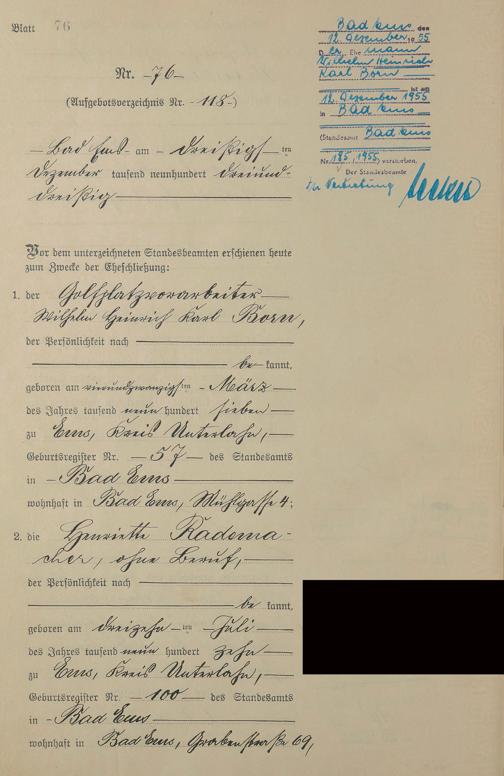 Blatt 76
Bad Ems den
12. Dezember 1955
Der Ehemann
Wilhelm Heinrich
Karl Born
ist am
12. Dezember 1955
in Bad Ems
(Standesamt Bad Ems
Nr. 185/1955) verstorben.
Der Standesbeamte
In Vertretung
Nr. -76-
(Aufgebotsverzeichnis Nr. -118-)
- Bad Ems - am - dreißigsten
Dezember tausend neunhundert dreiund-
dreißig
Vor dem unterzeichneten Standesbeamten erschienen heute
zum Zwecke der Eheschließung:
1. der Golfplatzvorarbeiter
Wilhelm Heinrich Karl Born,
der Persönlichkeit nach
be kannt,
geboren am vierundzwanzigsten - März
des Jahres tausend neun hundert sieben
zu Ems, Kreis Unterlahn,
Geburtsregister Nr. - 57 - des Standesamts
in - Bad Ems
wohnhaft in Bad Ems, Mühlgasse 4;
2. die Henriette Radema-
cher, ohne Beruf,
der Persönlichkeit nach
be kannt,
geboren am dreizehnten Juli
des Jahres tausend neun hundert zehn
zu Ems, Kreis Unterlahn,
Geburtsregister Nr. - 100 - des Standesamts
in - Bad Ems
wohnhaft in Bad Ems, Grabenstraße 69,